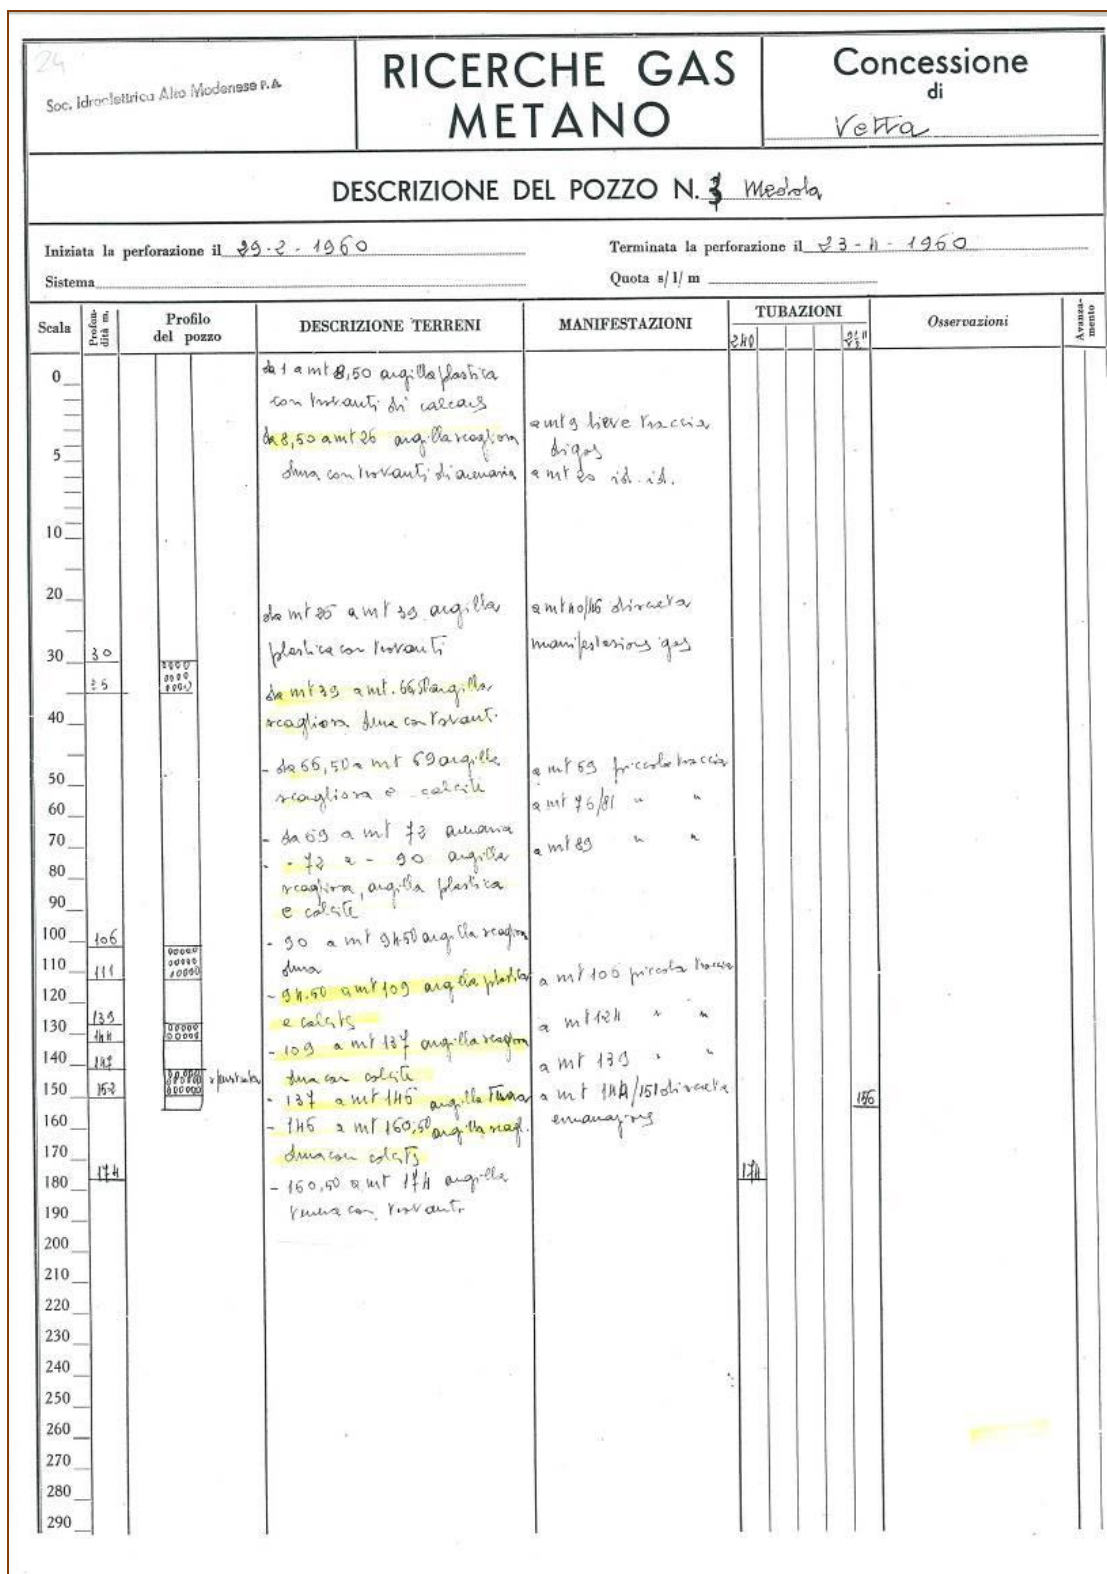 24
Soc. Idroelettrica Alto Modenese P.A.
RICERCHE GAS
METANO
Concessione
di
Vetta
DESCRIZIONE DEL POZZO N. 3 Medola
Iniziata la perforazione il 29-2-1960
Terminata la perforazione il 23-4-1960
Sistema
Quota s/l/m
Scala
Profondità m.
Profilo
del pozzo
DESCRIZIONE TERRENI
MANIFESTAZIONI
TUBAZIONI
240
Osservazioni
Avanzamento
0
5
10
20
30
40
50
60
70
80
90
100
110
120
130
140
150
160
170
180
190
200
210
220
230
240
250
260
270
280
290
30
35
106
111
139
144
147
152
174
da 1 a mt 8,50 argilla plastica
con trovanti di calcare
da 8,50 a mt 26 argilla scagliosa
dura con trovanti di arenaria
da mt 26 a mt 39 argilla
plastica con trovanti
da mt 39 a mt. 66,50 argilla
scagliosa dura con trovanti
- da 66,50 a mt 69 argilla
scagliosa e calcite
- da 69 a mt 72 arenaria
- - 72 a - 90 argilla
scagliosa, argilla plastica
e calcite
- 90 a mt 94.50 argilla scagliosa
dura
- 94.50 a mt 109 argilla plastica
e calcite
- 109 a mt 137 argilla scagliosa
dura con calcite
- 137 a mt 146 argilla
- 146 a mt 160,50 argilla scagl.
dura con calcite
- 160,50 a mt 174 argilla
tenera con trovanti
a mt 9 lieve traccia
di gas
a mt 20 id. id.
a mt 40/46 discreta
manifestazione gas
a mt 69 piccola traccia
a mt 76/81 " "
a mt 89 " "
a mt 106 piccola traccia
a mt 124 " "
a mt 139 " "
a mt 144/151 discreta
emanazione
156
174